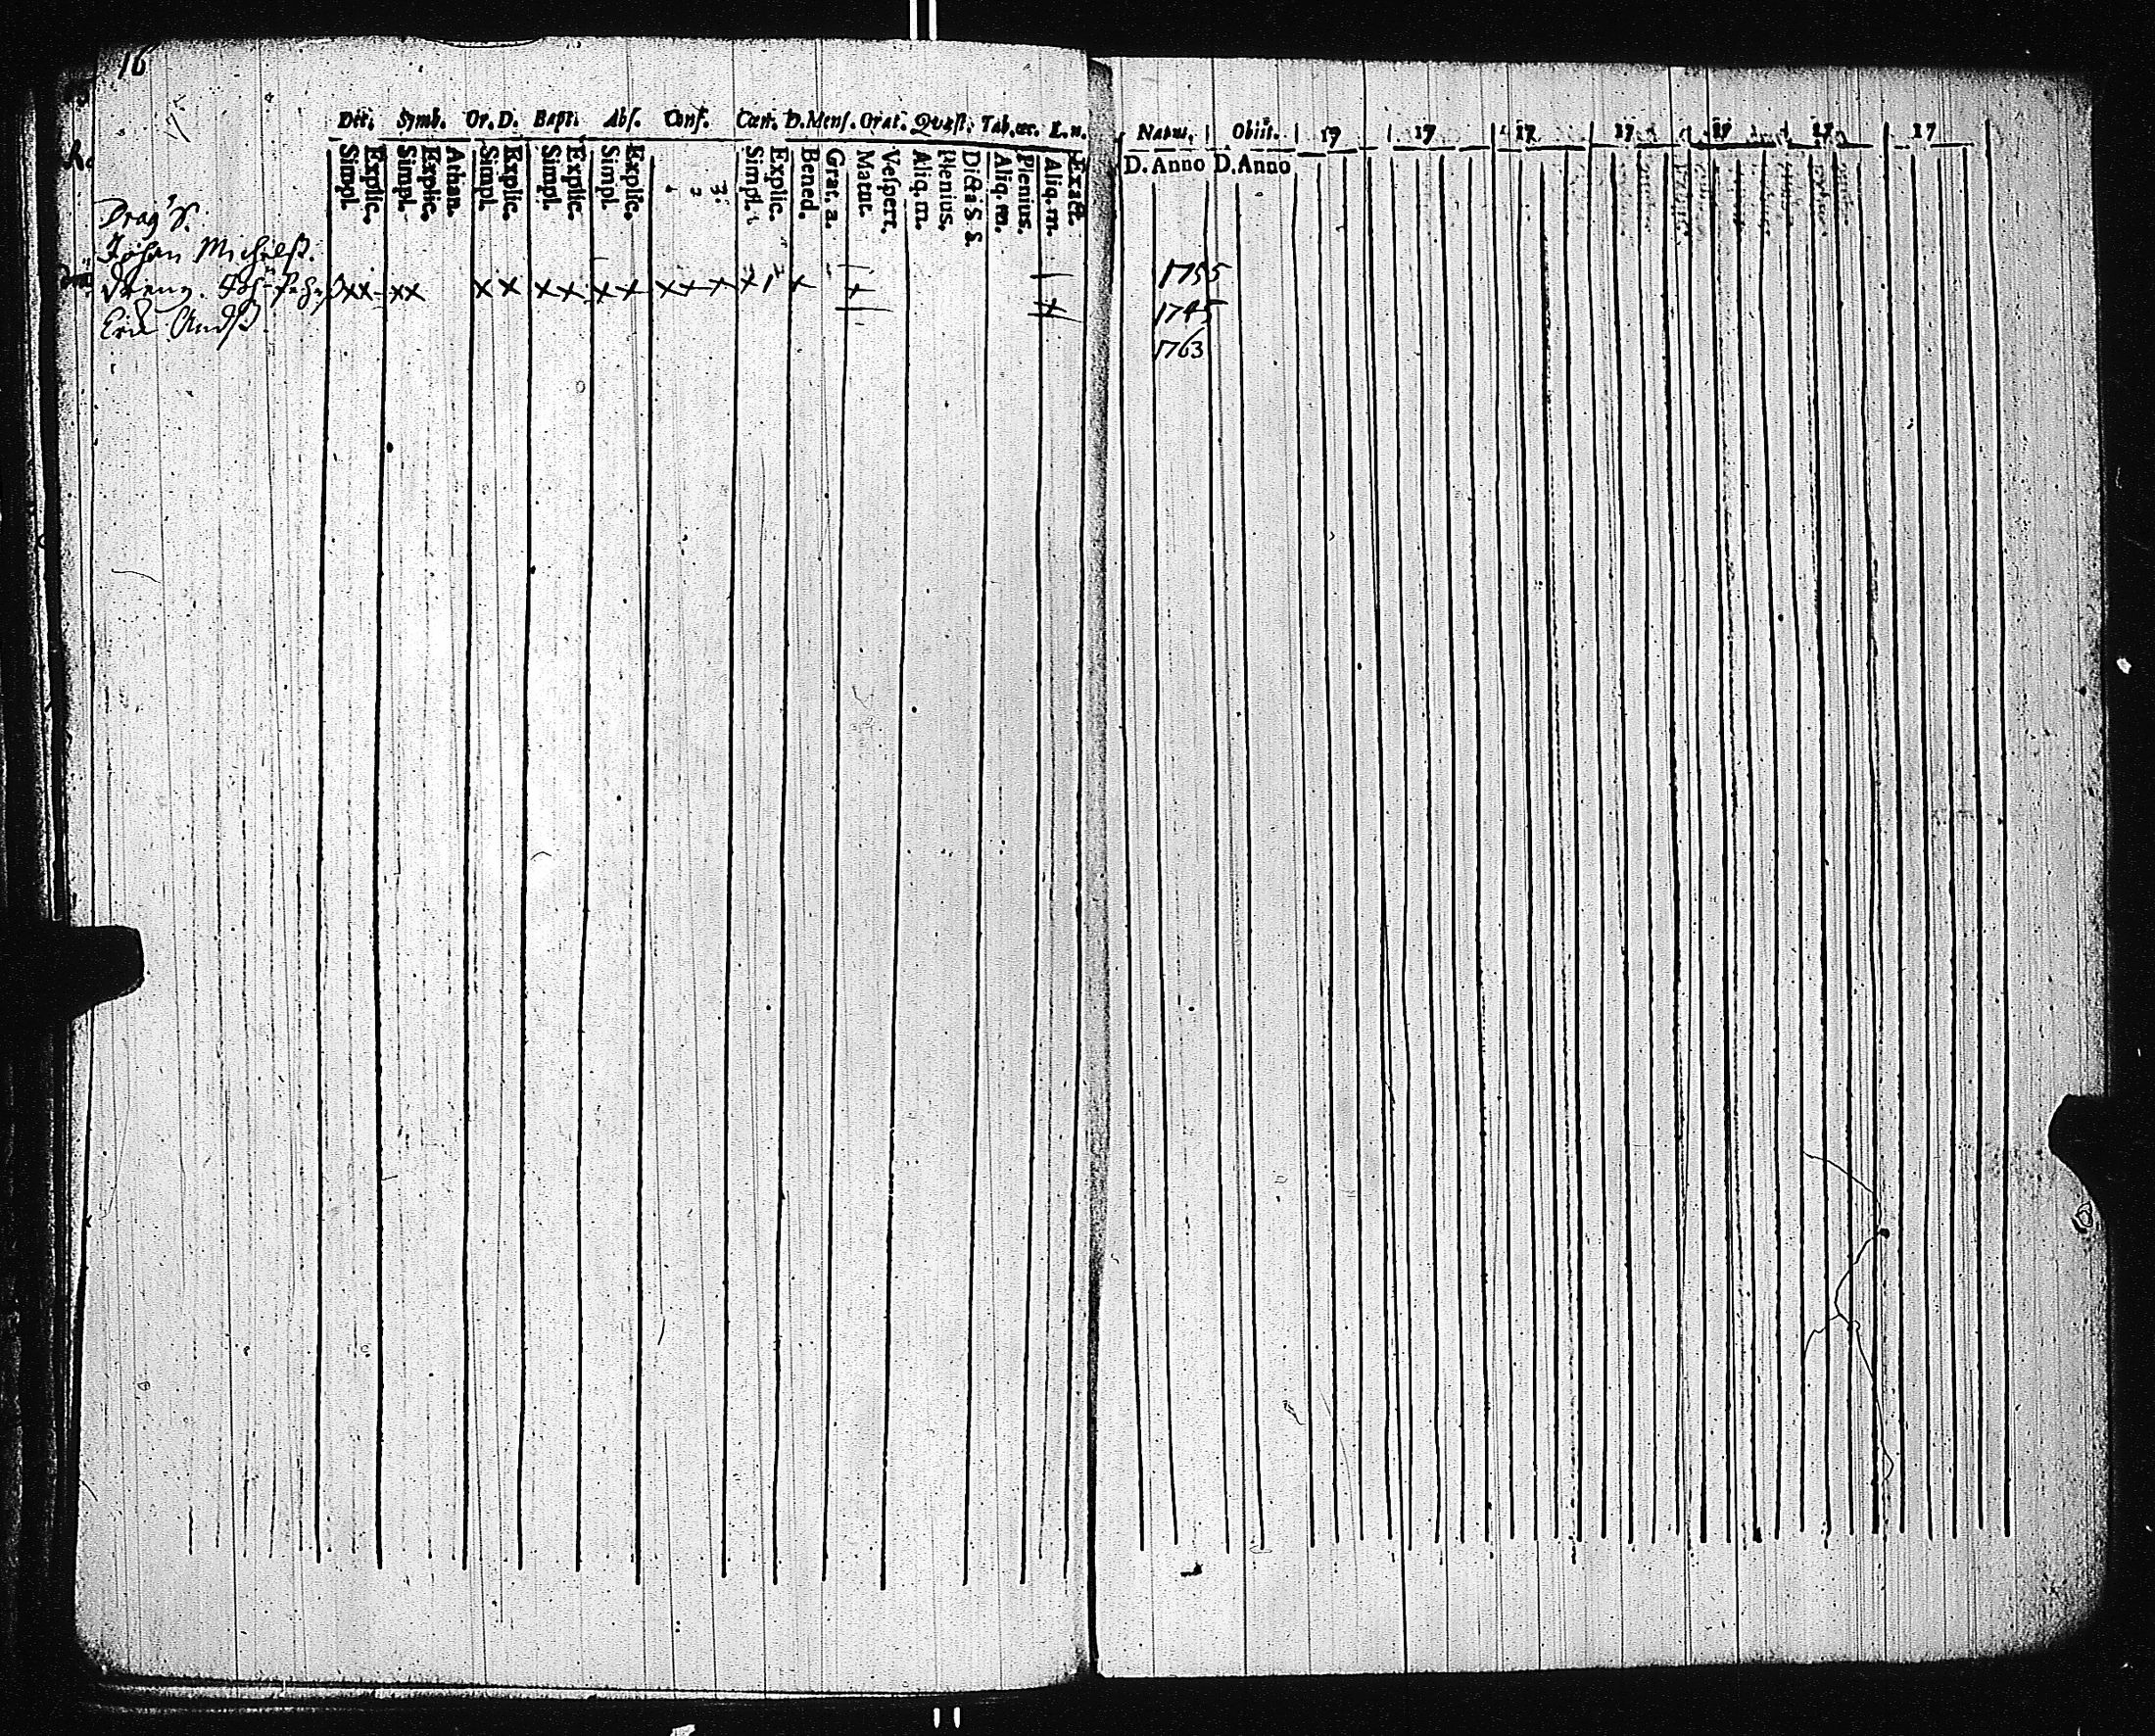 16
Dec. Symb. Or. D. Bapt. Abs. Conf. Cœn. D. Mens. Orat. Quæst. Tab. œc. L. n.
Simpl. Explic. Simpl. Explic. Athan. Simpl. Explic. Simpl. Explic. Simpl. Explic. 1 2 3 Simpl. Explic. Bened. Grat. a. Matut. Vespert. Aliq. m. Plenius. Dicta S S. Aliq. m. Plenius. Aliq. m. Exacte.
Johan Michelss.
× × × × × × × × × × × × × × × × ×
Eric Andss.
Natus. Obiit. 17 17 17 17 17 17 17
D. Anno D. Anno
1755
1745
1763